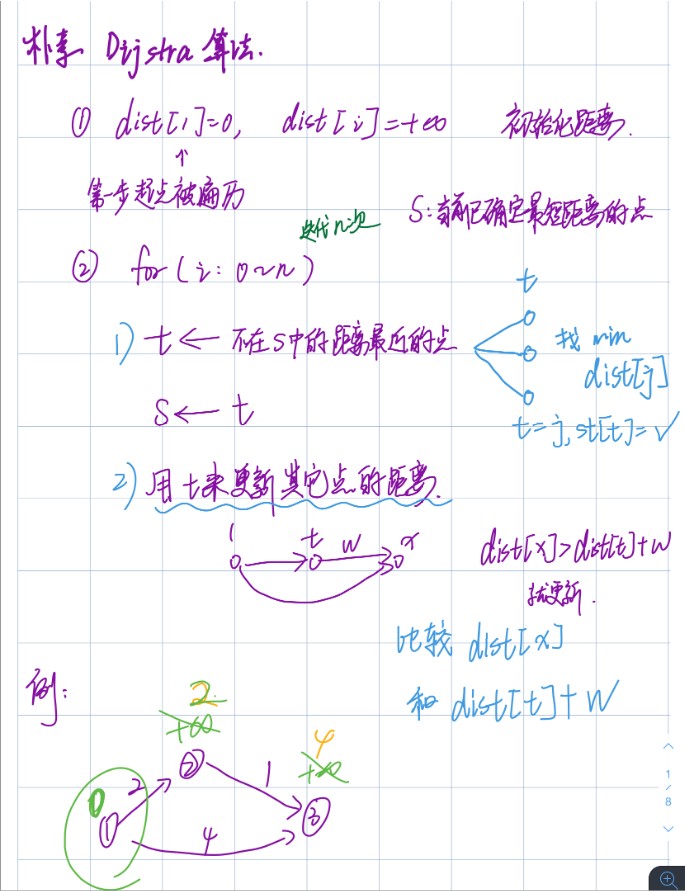 朴素 Dijstra 算法.
① dist[1]=0, dist[i]=+∞ 初始化距离.
↑
第一步起点被遍历
S:当前已确定最短距离的点
迭代n次
② for(i:0~n)
1) t← 不在S中的距离最近的点
S← t
t
找 min
dist[j]
t=j,st[t]=√
2) 用t来更新其它点的距离.
1 t w x
dist[x]>dist[t]+w
就更新.
比较 dist[x]
和 dist[t]+w
例:
2
+∞
4
+∞
0
① 2 ② 1 ③
4
1
/
8